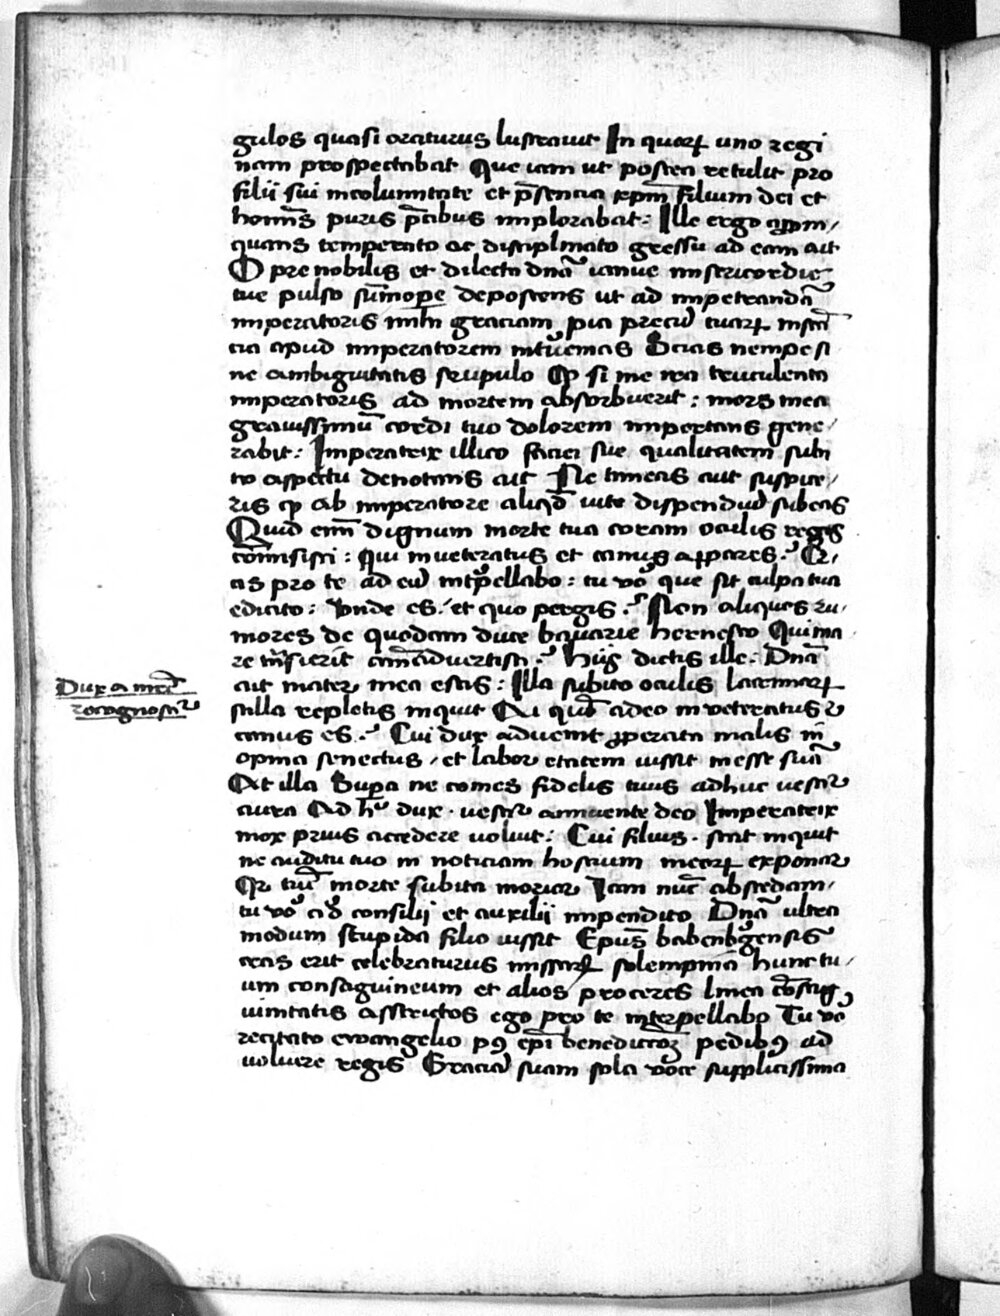 gulos quasi oraturus lustrauit In quorꝝ uno regi
nam prospectabat Que iam ut postea retulit pro
filij sui incolumitate et p̄sencia xp̄m filium dei et
homīs puris p̄cibus implorabat: Ille ergo appro
quans temperato ac disciplinato gressu ad eam ait
O prenobilis et dilecta dn̄a ianue misericordie
tue pulso sūmope deposcens ut ad impetrandā
imperatoris michi graciam pia precū tuarꝝ instā
cia apud imperatorem intͥuenias Scias nempe si
ne ambiguitatis scrupulo Qꝫ si me ira truculenta
imperatoris ad mortem absorbuerit: mors mea
grauissimū cordi tuo dolorem importans gene/
rabit: Imperatrix illico faciei sue qualitatem subi
to aspectu denotans ait Ne timeas aut suspice/
ris qꝫ ab imperatore aliqd̄ uite dispendiū subeas
Quid eīm dignum morte tua coram oculis regis
cōmisisti: Qui inueteratus et canus appares. Cr/
as pro te ad eū intp̱ellabo: tu vͦo que sit culpa tua
edicito: Unde es et quo pergis. Non aliquos ru/
mores de quodam duce bauarie hernesto Qui ma
re trāsierit aīmaduertisti. Hijs dictis ille. Dn̄a
ait mater mea estis: Illa subito oculis lacrimarꝝ
stilla repletis inquit Ai quō adeo inveteratus
canus es. Cui dux aduenit properata malis in
opina senectus / et labor etatem iussit inesse suā
At illa Supa ne comes fidelis tuus adhuc uescit᷑
aura Ad h̄ dux. uescit᷑ annuente deo Imperatrix
mox prius accedere uoluit: Cui filius. stat inquit
ne auditu tuo in noticiam hostium meorꝝ exponar
Qꝛ tūc morte subita moriar Iam nūc abscedam/
tu vͦo ad consilij et auxilij impendito Dn̄a ultra
modum stupida filio iussit Ep̄us babenbergensis
cras erit celebraturus missarꝝ solempnia hunc tu/
um consaguineum et alios proceres linea cōsag
uinitatis asstrictos ego pro te interpellabo Tu vͦo
recitato ewangelio pꝰ ep̄i benedictōꝫ pedibꝰ ad
uoluere regis Graciā suam sola voce supplicissima
Dux a mr̄e
recognoscit᷑